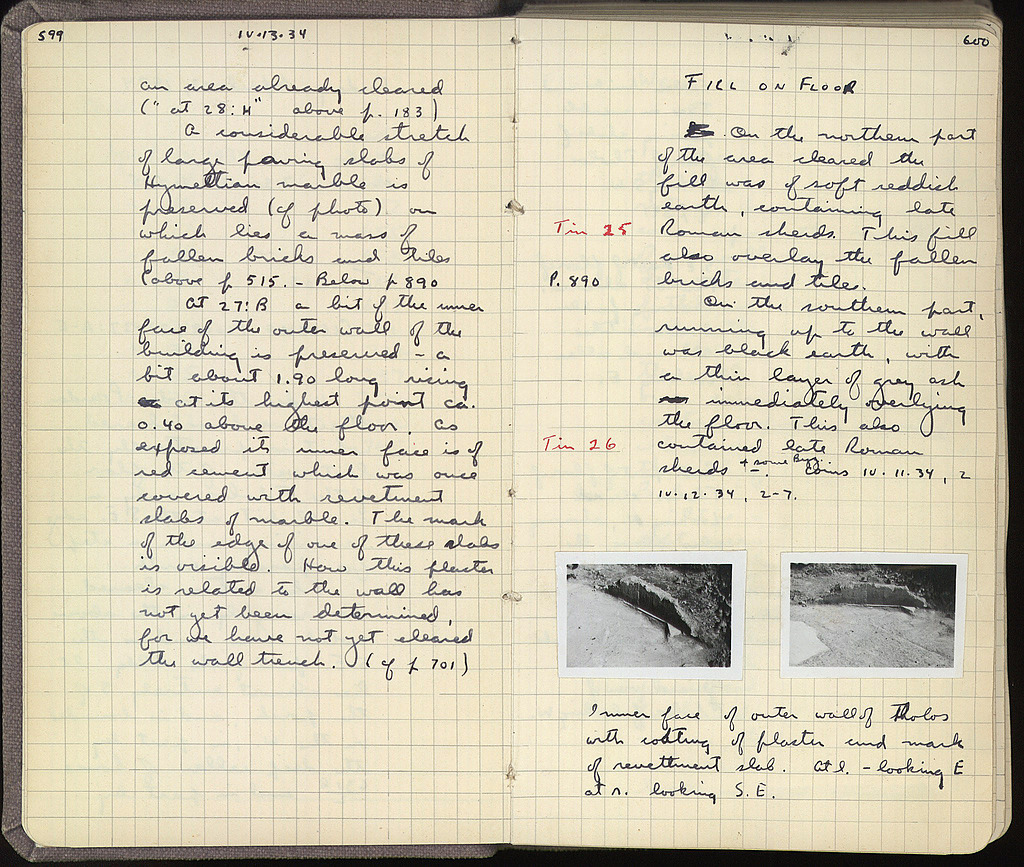 599
IV·13·34
an area already cleared
("at 28:H" above p. 183)
A considerable stretch
of large paving slabs of
Hymettian marble is
preserved (cf photo) on
which lies a mass of
fallen bricks and tiles
(above p 515. - Below p 890
At 27:B a bit of the inner
face of the outer wall of the
building is preserved - a
bit about 1.90 long rising
at its highest point ca.
0.40 above the floor. As
exposed its inner face is of
red cement which was once
covered with revetment
slabs of marble. The mark
of the edge of one of these slabs
is visible. How this plaster
is related to the wall has
not yet been determined,
for we have not yet cleared
the wall trench. (cf p 701)
600
FILL ON FLOOR
On the northern part
of the area cleared the
fill was of soft reddish
earth, containing late
Tin 25 Roman sherds. This fill
also overlay the fallen
P. 890 bricks and tiles.
On the southern part,
running up to the wall
was black earth, with
a thin layer of grey ash
immediately overlying
the floor. This also
Tin 26 contained late Roman
sherds + some Byz. Coins IV·11·34, 2
IV·12·34, 2-7.
Inner face of outer wall of Tholos
with coating of plaster and mark
of revettment slab. At l. - looking E
at r. looking S.E.